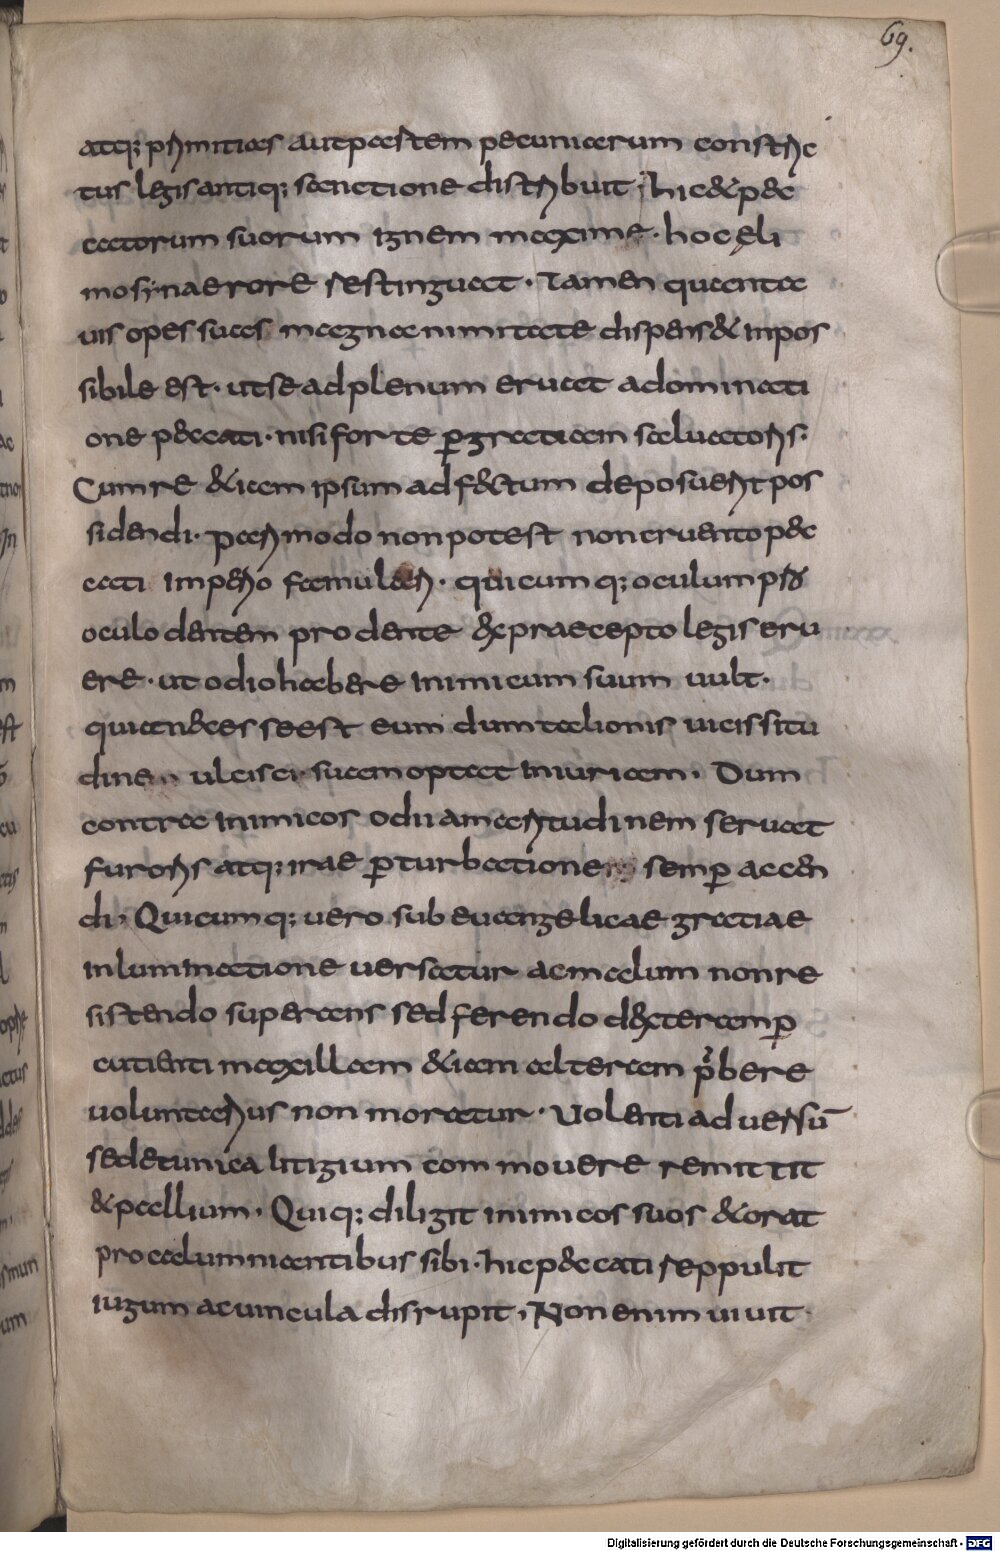 69.
atq; primitias aut partem pecuniarum constric
tus legis antiq; sanctione distribuit, hic & pec
catorum suorum ignem maxime · hoc eli
mosynae rore restinguaet · Tamen quanta
uis opes suas magna nimitate dispens& inpos
sibile est · ut se ad plenum eruaet a dominati
one peccati · nisi forte p gratiam saluatoris ·
Cum re & iam ipsum adfectum deposuerit pos
sidendi · Pari modo non potest non cruento pec
cati imperio famulari · quicumq; oculum pro
oculo dentem pro dente ex praecepto legis eru
ere · ut odio habere inimicum suum uult ·
quia necesse est eum dum talionis uicissitu
dine ulcisci suam optat iniuriam · Dum
contra inimicos odii amaritudinem seruaet
furoris atq; irae pturbatione semp accen
di, Quicumq; uero sub euangelicae gratiae
inluminatione uersatur ac malum non re
sistendo superans sed ferendo dexteram p
cutienti maxillam & iam alteram pbere
uoluntarius non moratur · Uolenti aduersū
se de tunica litigium commouere remittit
& pallium · Quiq; diligit inimicos suos & orat
pro calumniantibus sibi · hic peccati reppulit
iugum ac uincula disrupit, Non enim uiuit
Digitalisierung gefördert durch die Deutsche Forschungsgemeinschaft - DFG